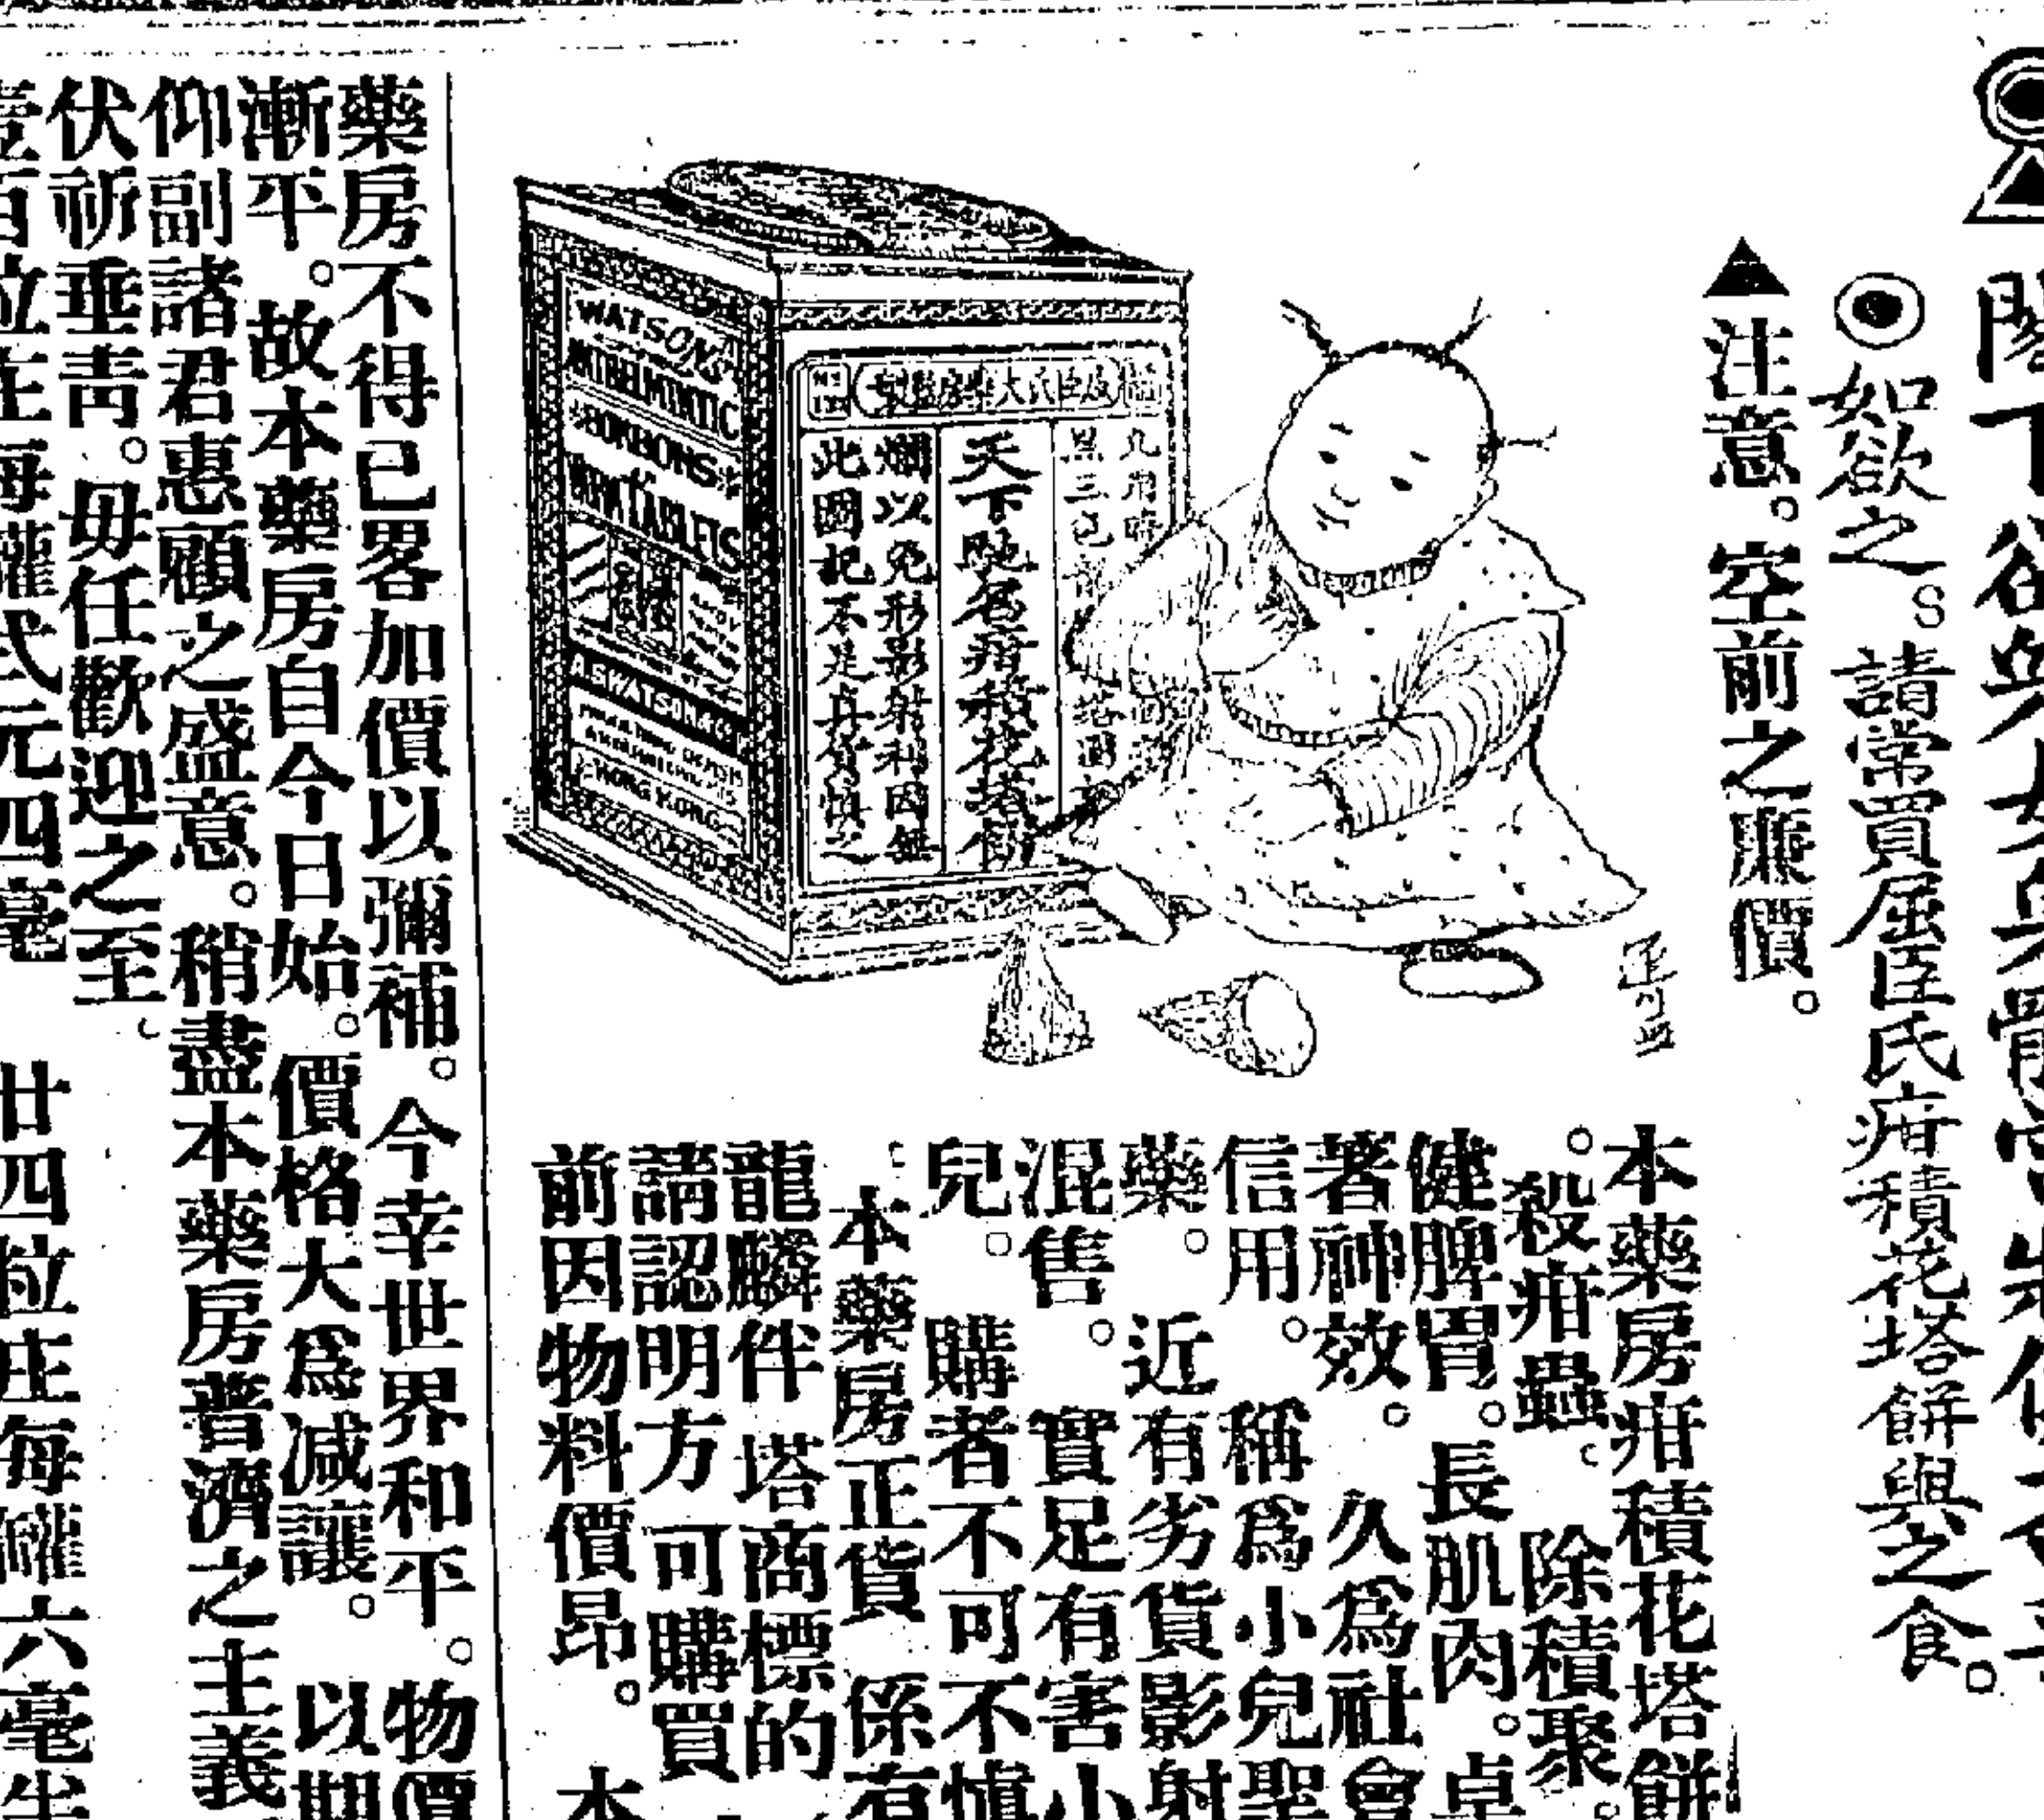 ◎如欲之。請常買屈臣氏疳積花塔餅與之食。
▲注意。空前之廉價。
WATSON'S
BONBONS
WORM TABLETS
A.S. WATSON & CO
HONG KONG
天下馳名疳積花塔餅
爛以免形影射利因無
此圖記不是真貨慎之
本藥房疳積花塔餅
。殺疳蟲。除積聚。
健脾胃。長肌肉。卓
著神效。久爲社會
信用。稱爲小兒聖
藥。近有劣貨影射
混售。實足有害小
兒。購者不可不慎
本藥房正貨係有
龍麟伴塔商標的
請認明方可購買
前因物料價昂。本
藥房不得已畧加價以彌補。今幸世界和平。物價
漸平。故本藥房自今日始。價格大爲减讓。以期
仰副諸君惠顧之盛意。稍盡本藥房普濟之主義
伏祈垂青。毋任歡迎之至。
壹百粒庄每罐弍元四毫 廿四粒庄每罐六毫半